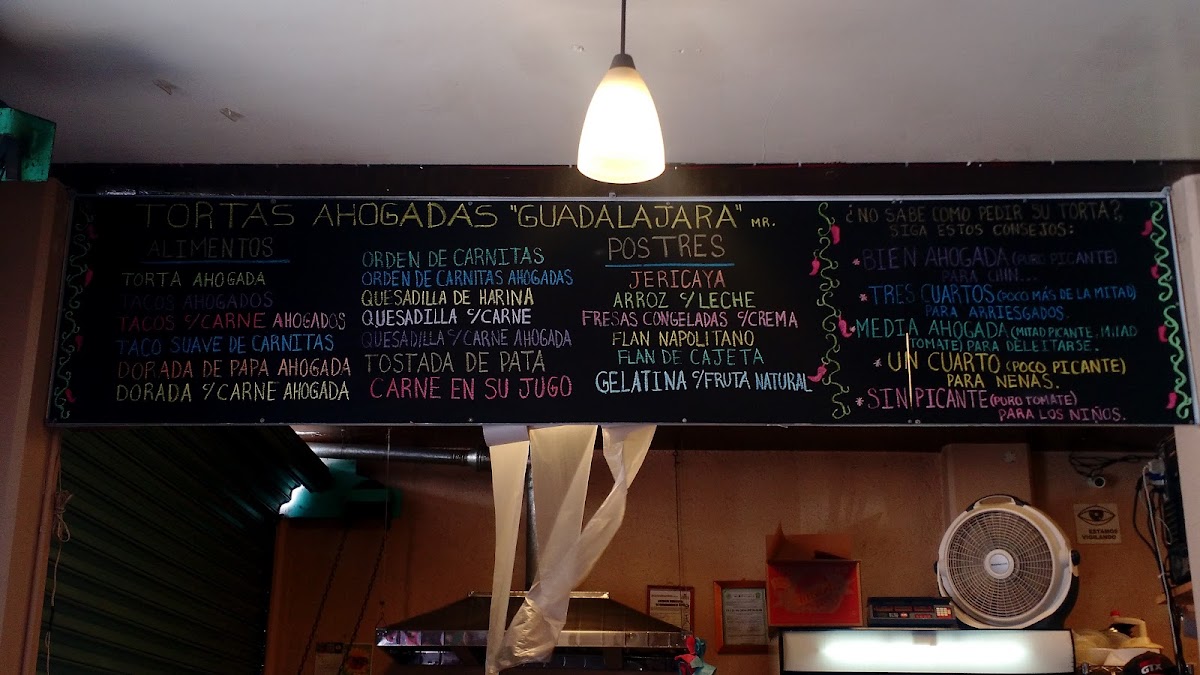 TORTAS AHOGADAS "GUADALAJARA" MR.
ALIMENTOS
TORTA AHOGADA
TACOS AHOGADOS
TACOS C/CARNE AHOGADOS
TACO SUAVE DE CARNITAS
DORADA DE PAPA AHOGADA
DORADA C/CARNE AHOGADA
ORDEN DE CARNITAS
ORDEN DE CARNITAS AHOGADAS
QUESADILLA DE HARINA
QUESADILLA C/CARNE
QUESADILLA C/CARNE AHOGADA
TOSTADA DE PATA
CARNE EN SU JUGO
POSTRES
JERICAYA
ARROZ C/LECHE
FRESAS CONGELADAS C/CREMA
FLAN NAPOLITANO
FLAN DE CAJETA
GELATINA C/FRUTA NATURAL
¿NO SABE COMO PEDIR SU TORTA?,
SIGA ESTOS CONSEJOS:
* BIEN AHOGADA (PURO PICANTE)
PARA CHIN...
* TRES CUARTOS (POCO MÁS DE LA MITAD)
PARA ARRIESGADOS.
* MEDIA AHOGADA (MITAD PICANTE, MITAD
TOMATE) PARA DELEITARSE.
* UN CUARTO (POCO PICANTE)
PARA NENAS.
* SIN PICANTE (PURO TOMATE)
PARA LOS NIÑOS.
ESTAMOS
VIGILANDO
GTX